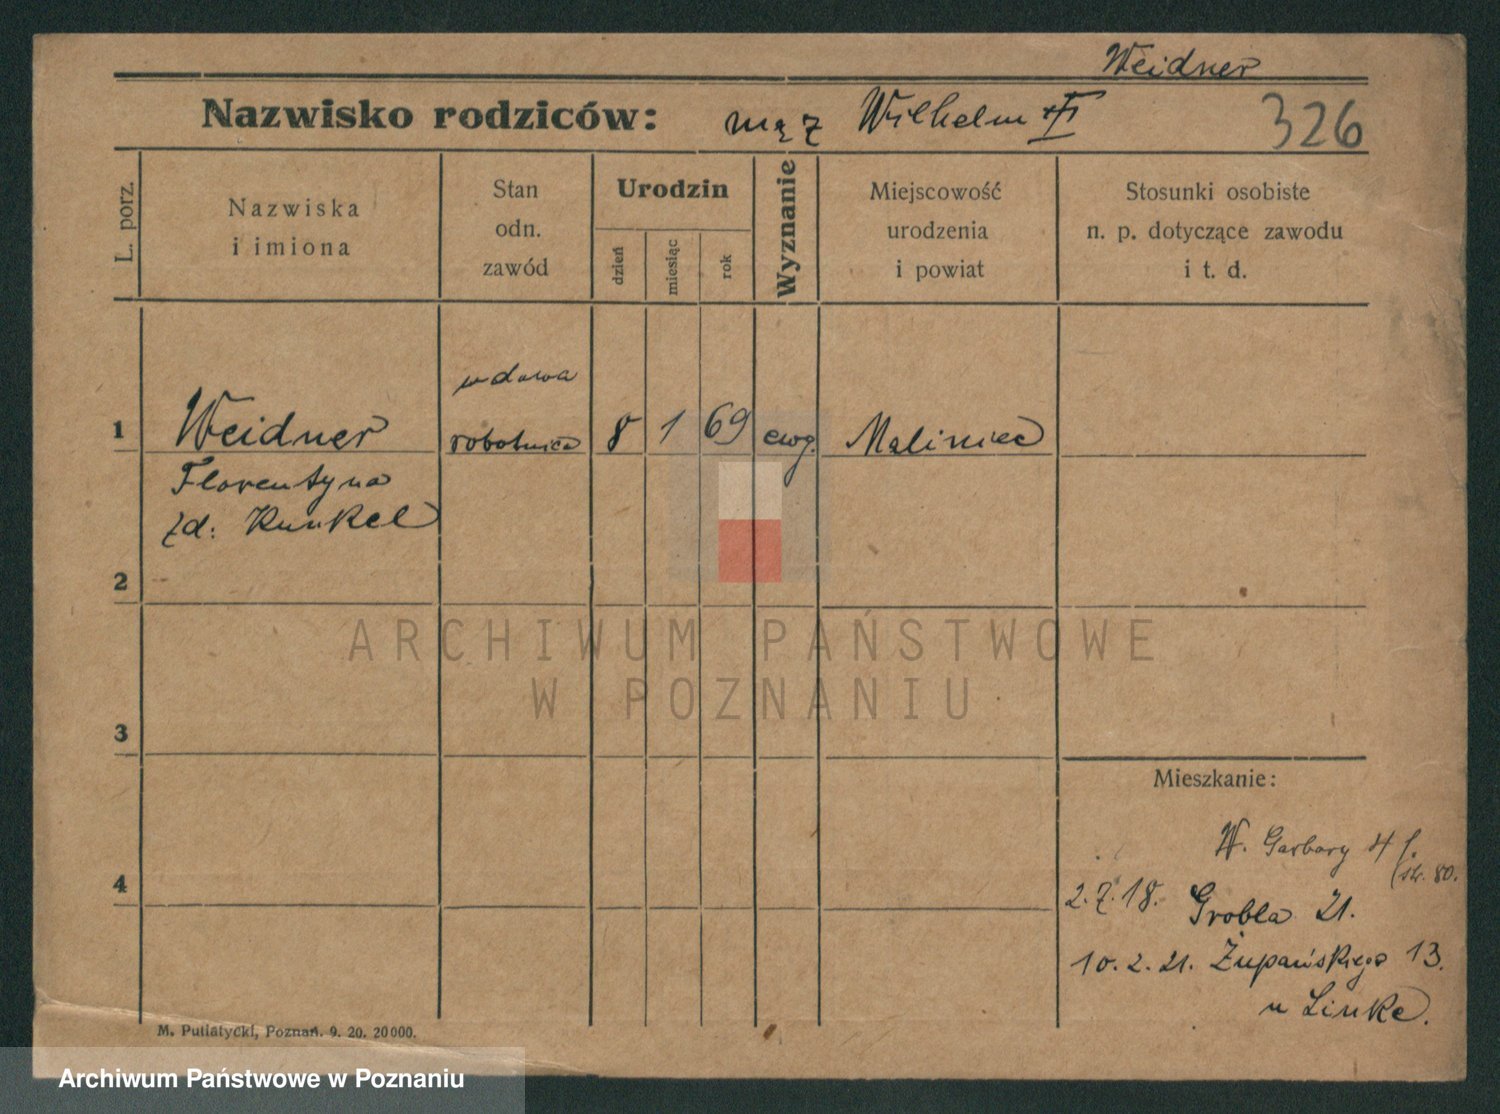 Weidner
Nazwisko rodziców: mąż Wilhelm
326
L. porz.
Nazwiska
i imiona
Stan
odn.
zawód
Urodzin
dzień
miesiąc
rok
Wyznanie
Miejscowość
urodzenia
i powiat
Stosunki osobiste
n. p. dotyczące zawodu
i t. d.
wdowa
1 Weidner robotnica 8 1 69 ewg. Maliniec
Florentyna
zd: Kunkel
2
ARCHIWUM PAŃSTWOWE
W POZNANIU
3
Mieszkanie:
W. Garbary 4
str. 80.
4
2.7.18. Grobla 21.
10.2.21. Żupańskiego 13.
u Linke.
M. Putiatycki, Poznań. 9. 20. 20000.
Archiwum Państwowe w Poznaniu